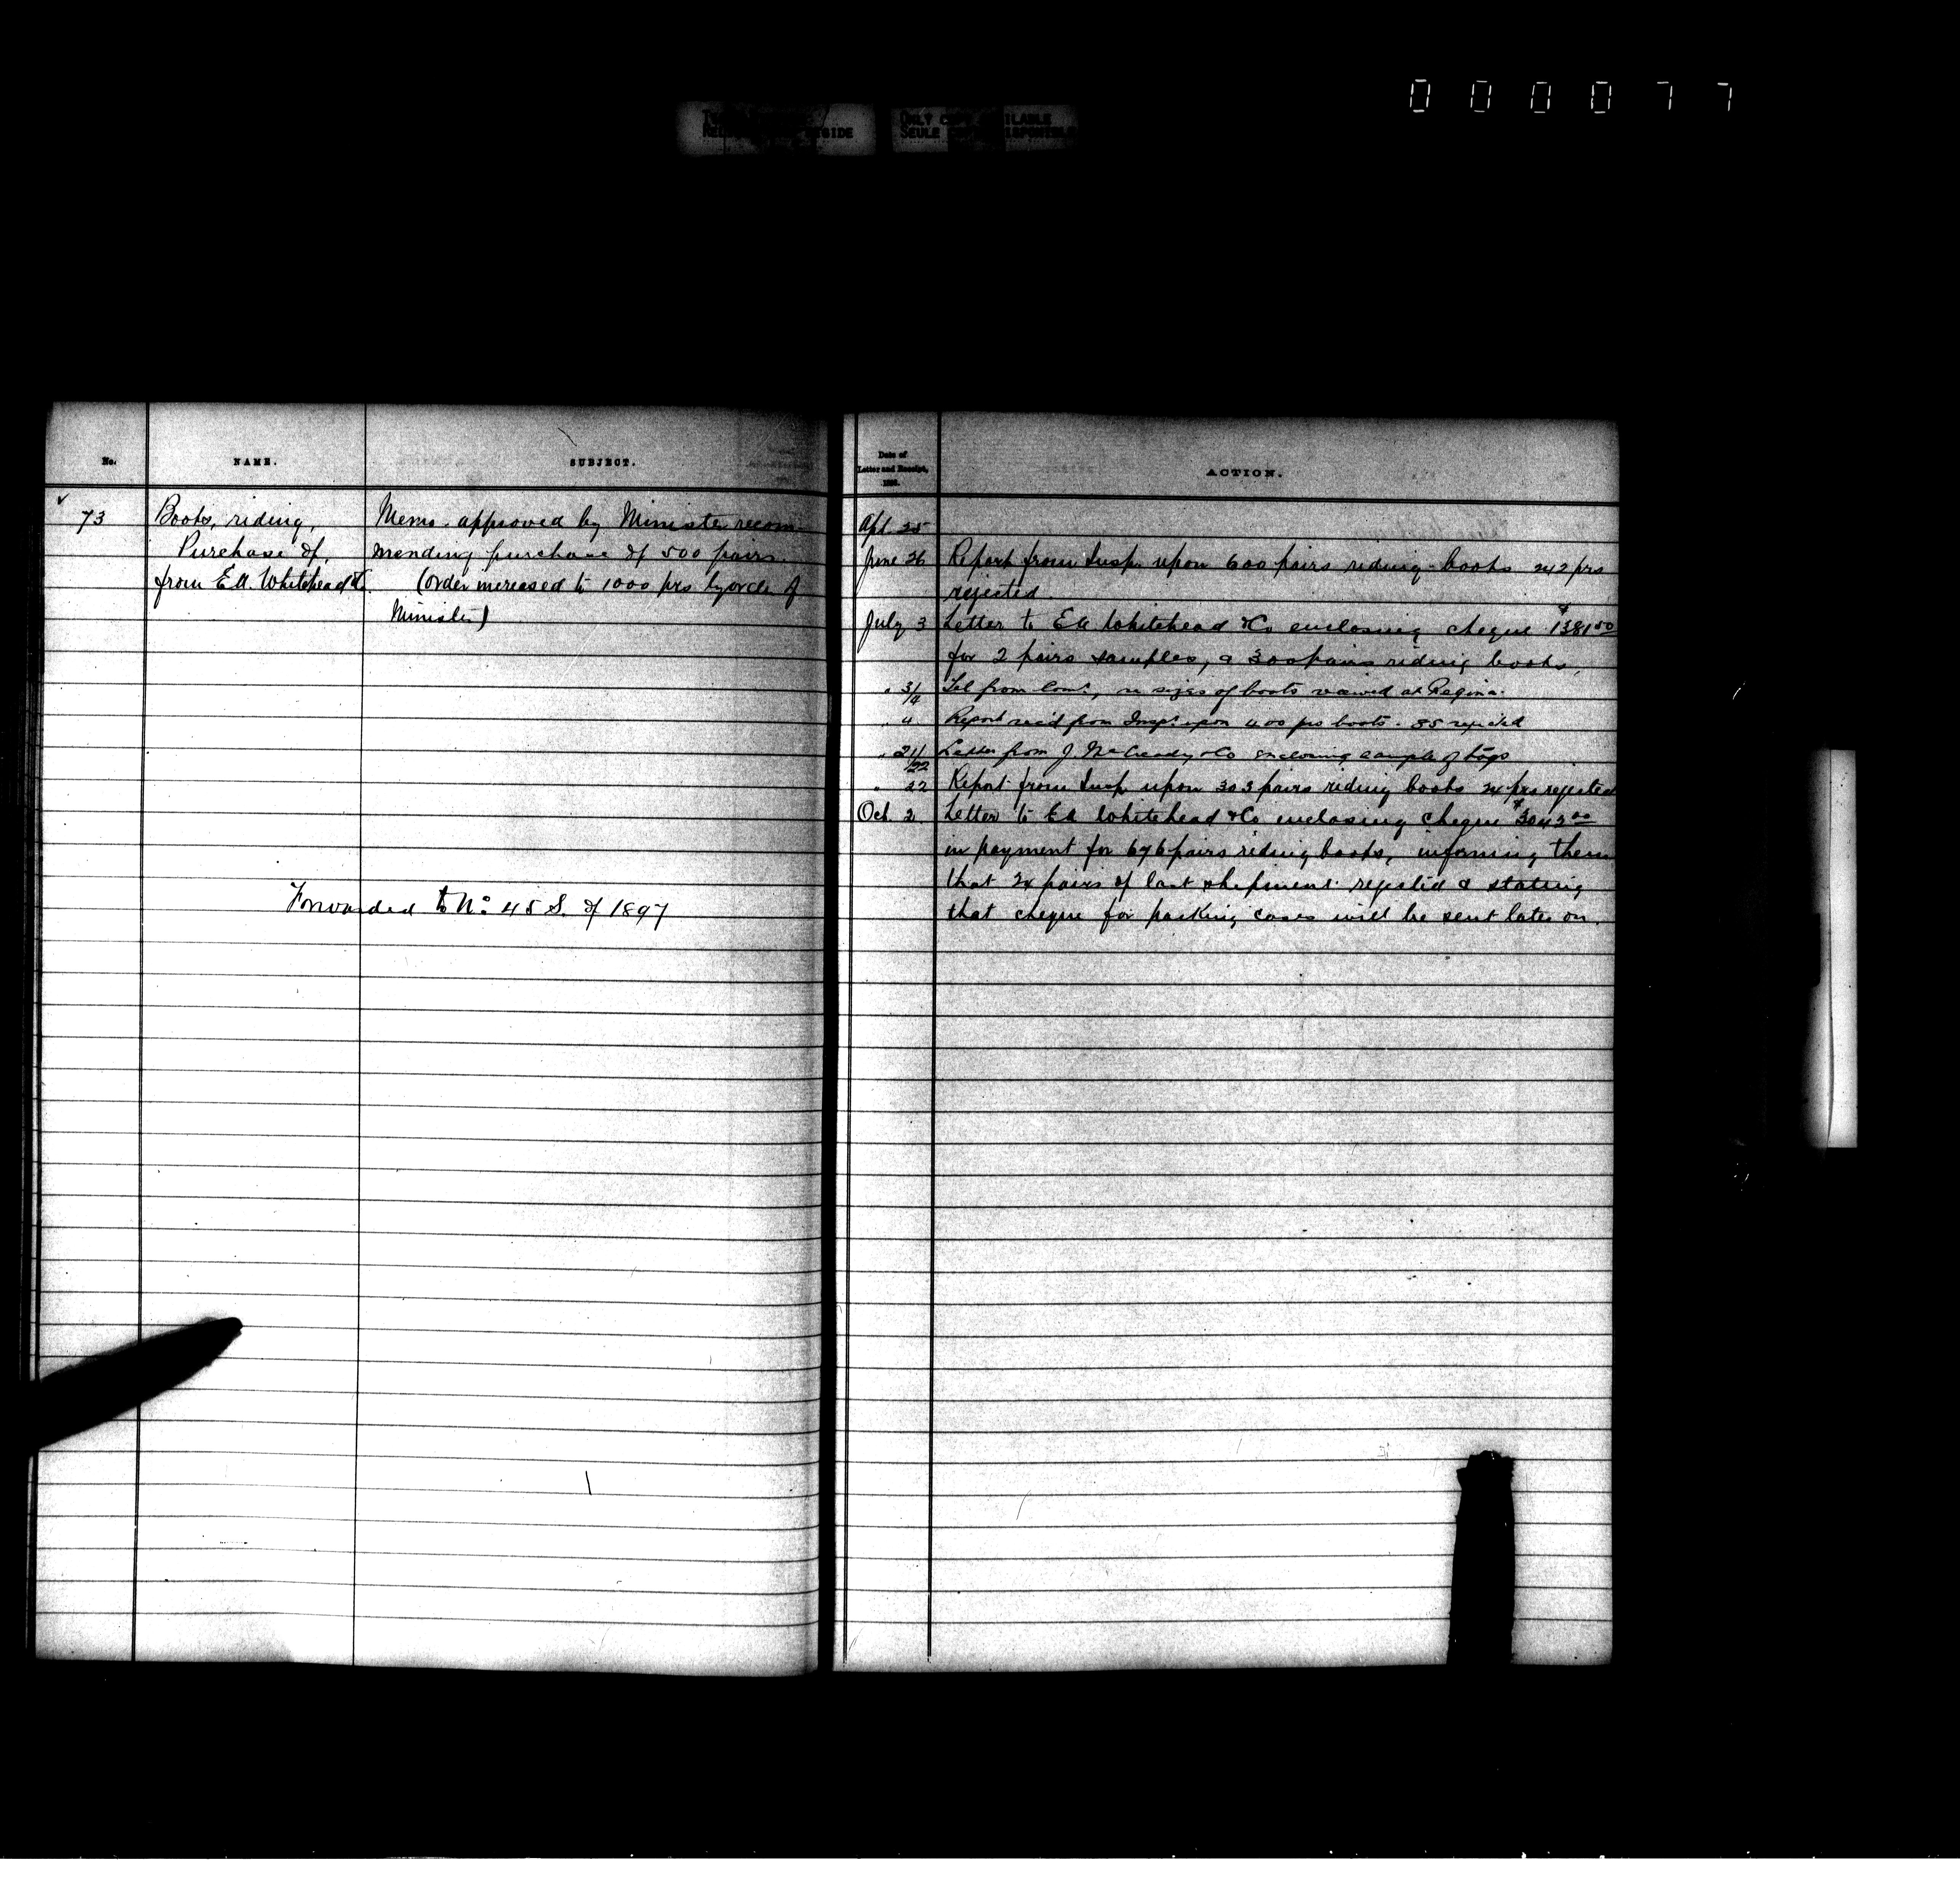 0 0 0 0 7 7
ONLY COPY AVAILABLE
SEULE COPIE DISPONIBLE
No. NAME. SUBJECT.
73 Boots, riding, Memo. approved by Minister recom-
Purchase of, mending purchase of 500 pairs.
from E.A. Whitehead & Co. (Order increased to 1000 prs by order of
Minister)
Forwarded to No. 45 S. of 1897
Date of Letter and Receipt, ACTION.
Apl. 25
June 26 Report from Insp. upon 600 pairs riding-boots 242 prs
rejected.
July 3 Letter to E.A. Whitehead & Co enclosing cheque $1381.50
for 2 pairs samples, & 300 pairs riding boots,
" 3/4 Tel from Comr., re sizes of boots received at Regina.
" 4 Report rec'd from Inspr. upon 400 prs boots. 85 rejected
" 21/22 Letter from J. McCready & Co enclosing sample of tops
" 22 Report from Insp. upon 303 pairs riding boots 24 prs rejected
Oct. 2 Letter to E.A. Whitehead & Co enclosing cheque $3042.00
in payment for 676 pairs riding boots, informing them
that 24 pairs of last shipment rejected & stating
that cheque for packing cases will be sent later on.